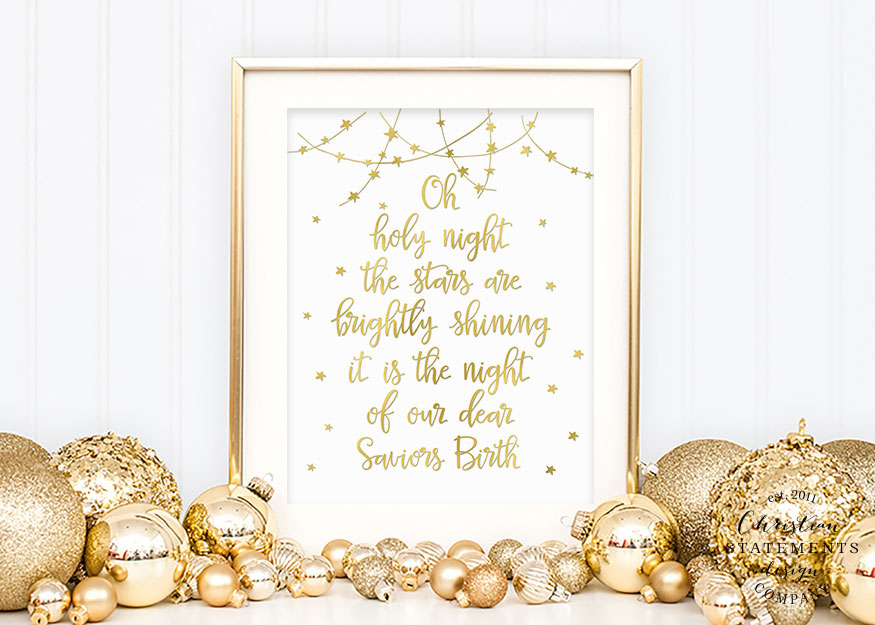 Oh
holy night
the stars are
brightly shining
it is the night
of our dear
Saviors Birth
est. 2011
Christian
STATEMENTS
design
COMPANY